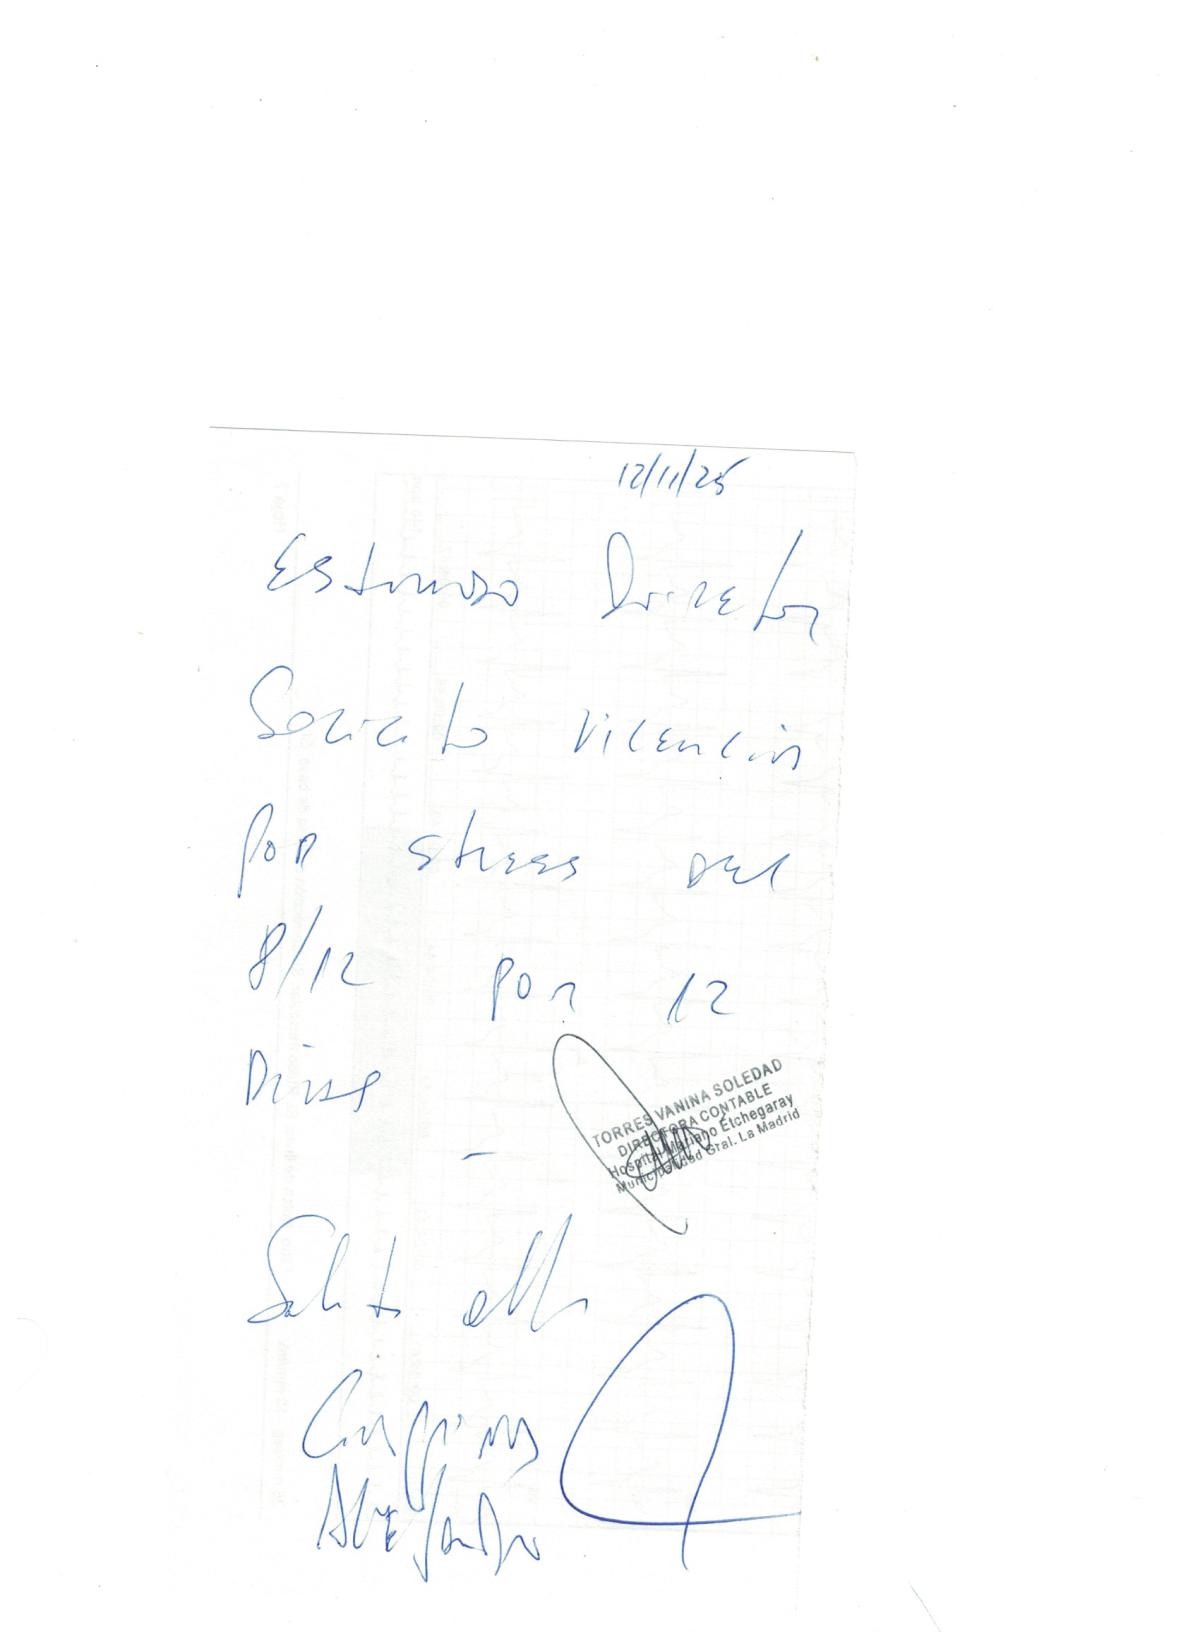 12/11/25
Estimado Director
Solicito Licencia
por stress del
8/12 por 12
Dias
-
TORRES VANINA SOLEDAD
DIRECTORA CONTABLE
Hospital Mariano Etchegaray
Municipalidad Gral. La Madrid
Saluto atte
Alejandro